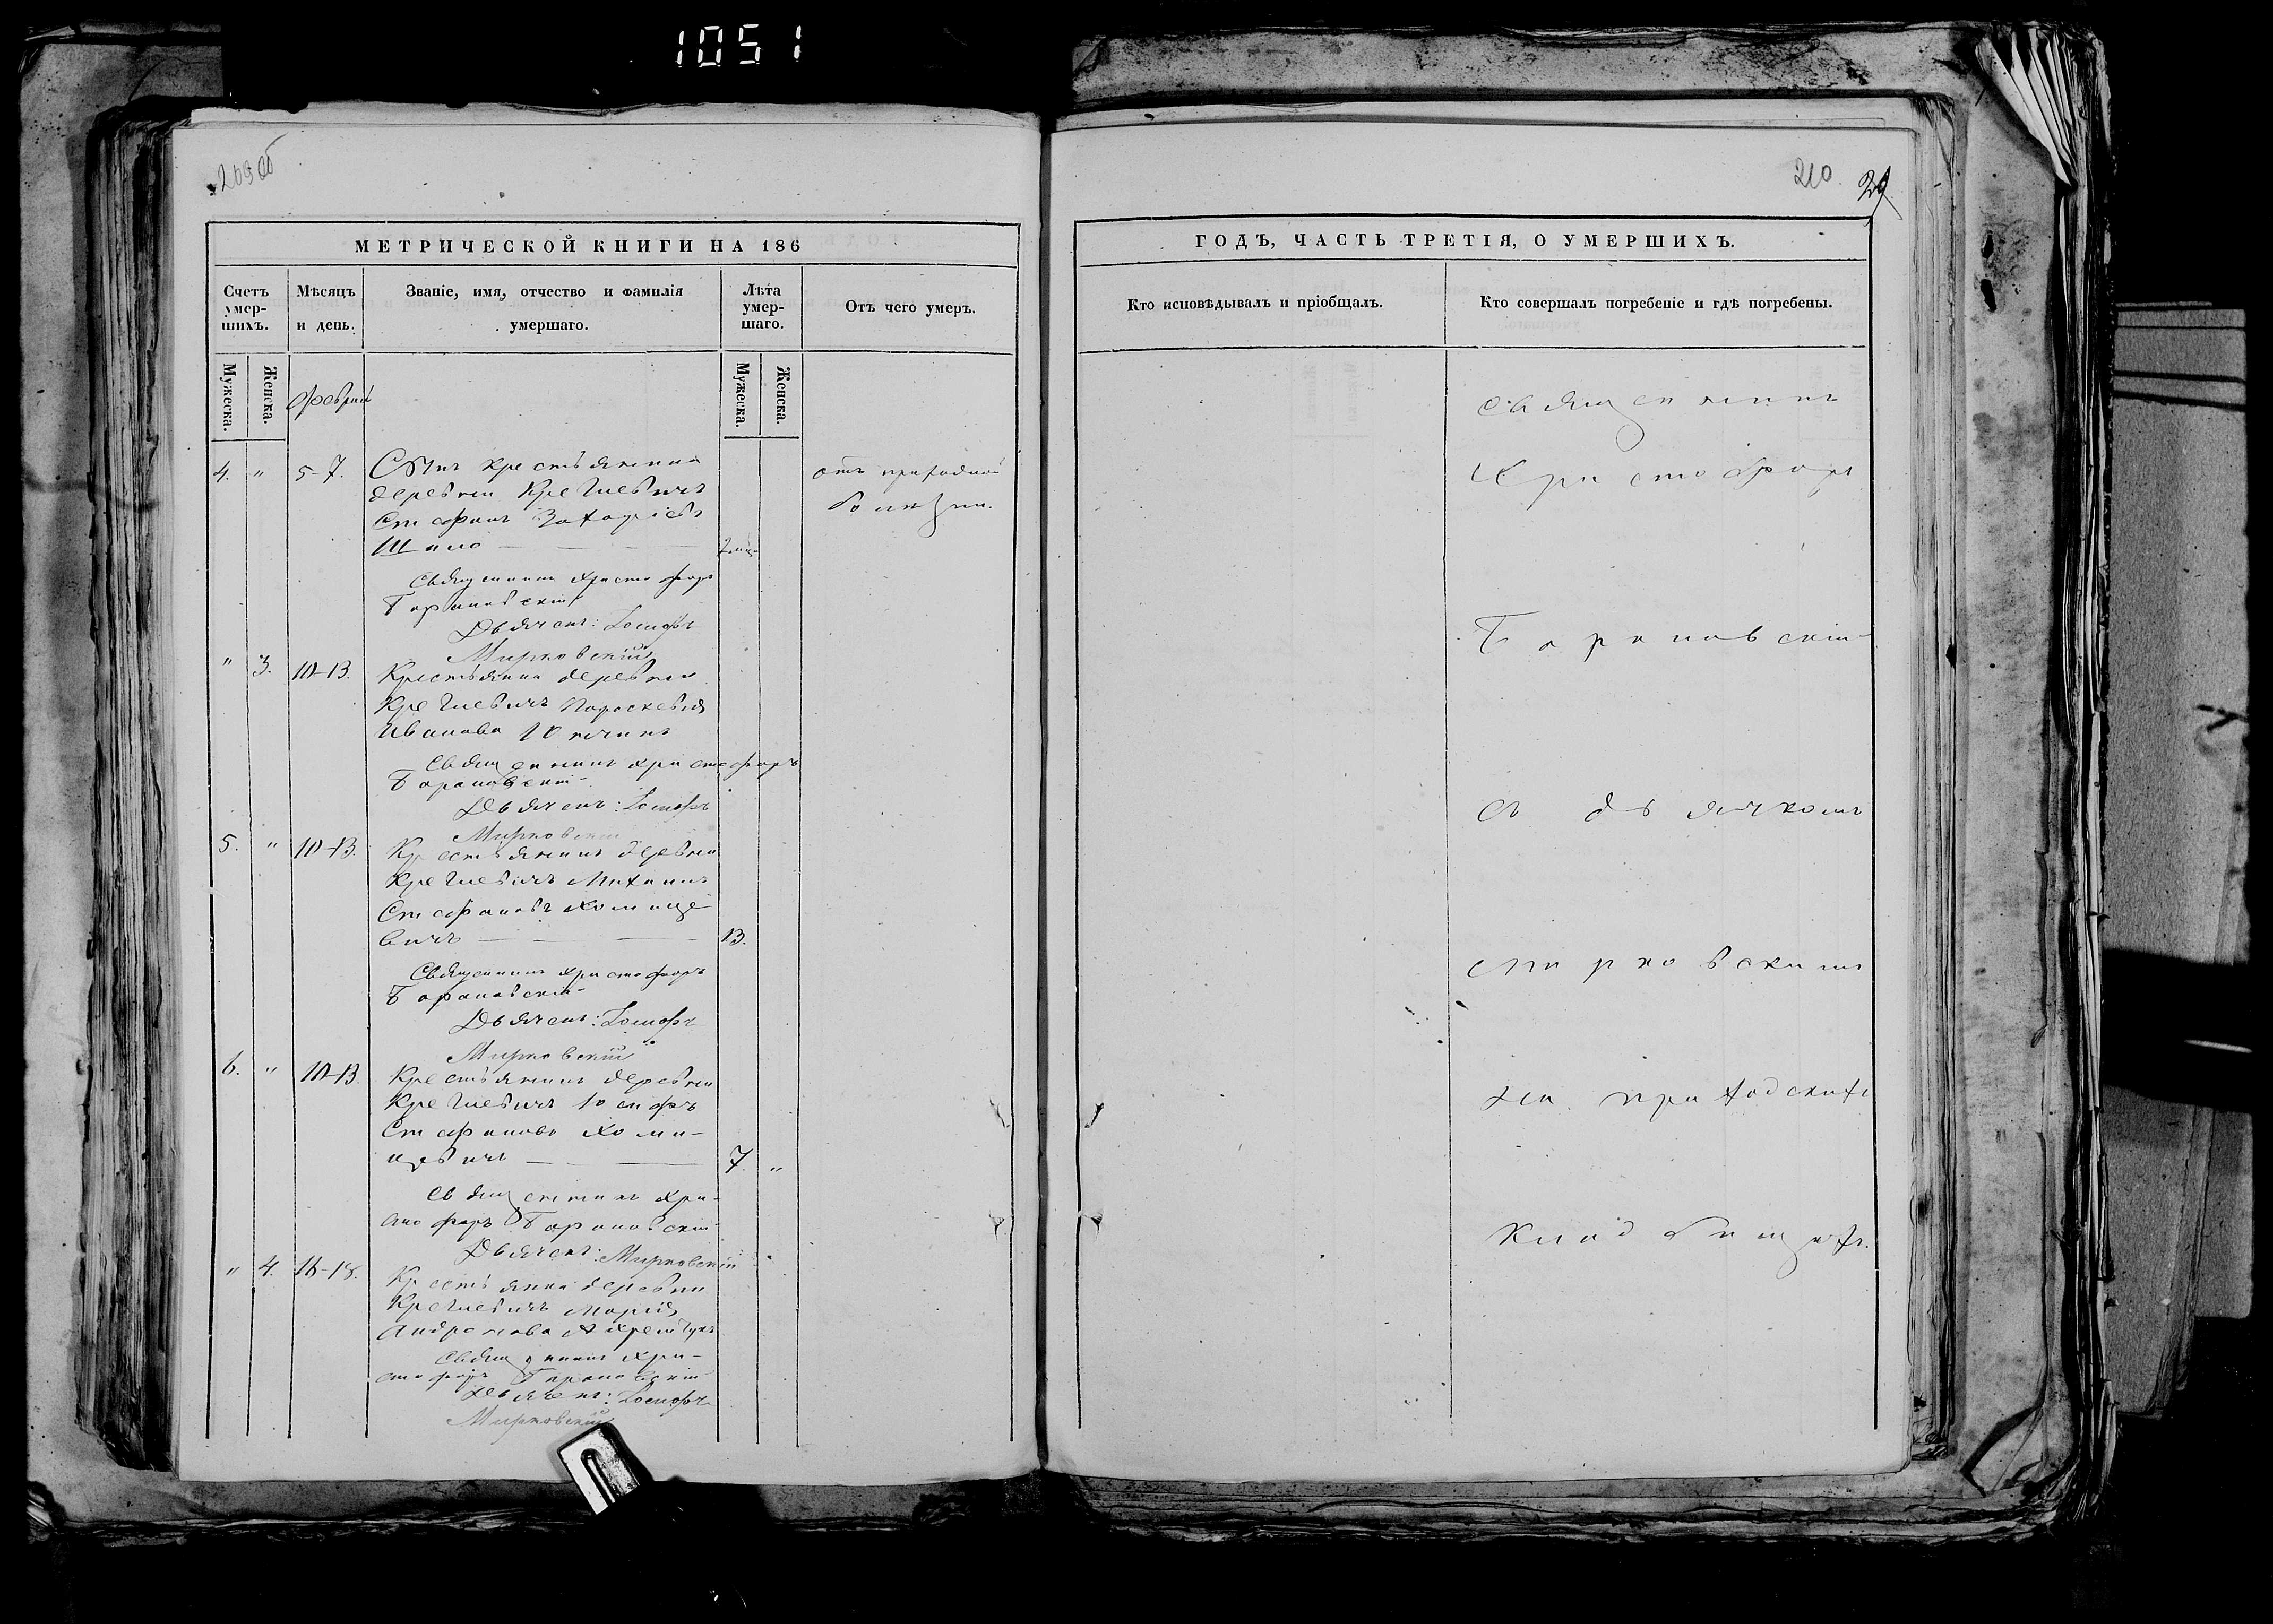 1051
209об
МЕТРИЧЕСКОЙ КНИГИ НА 186
Счетъ умершихъ.
Мѣсяцъ и день.
Званіе, имя, отчество и фамилія умершаго.
Лѣта умершаго.
Отъ чего умеръ.
Мужеска.
Женска.
Мужеска.
Женска.
4. " 5-7. Сынъ крестьянина
деревни
Стефанъ Захаріевъ
Шило
отъ природной
болезни.
Священникъ Христофоръ
Барановскій
Дьячекъ: Іосифъ
Мирковскій
" 3. 10-13. Крестьянка деревни
Параскевія
Иванова
Священникъ Христофоръ
Барановскій
Дьячекъ: Іосифъ
Мирковскій
5. " 10-13. Крестьянинъ деревни
Михаилъ
Стефановъ Хомице
вичъ 13.
Священникъ Христофоръ
Барановскій
Дьячекъ: Іосифъ
Мирковскій
6. " 10-13. Крестьянинъ деревни
Іосифъ
Стефановъ Хоми-
цевичъ 7. "
Священникъ Хри-
стофоръ Барановскій
Дьячекъ: Мирковскій
" 4. 16-18. Крестьянка деревни
Марія
Андреева
Священникъ Хри-
стофоръ Барановскій
Дьячекъ: Іосифъ
Мирковскій
210
ГОДЪ, ЧАСТЬ ТРЕТІЯ, О УМЕРШИХЪ.
Кто исповѣдывалъ и пріобщалъ.
Кто совершалъ погребеніе и гдѣ погребены.
Священникъ
Христофоръ
Барановскій
съ дьячкомъ
Мирковскимъ
на приходскихъ
кладбищахъ.